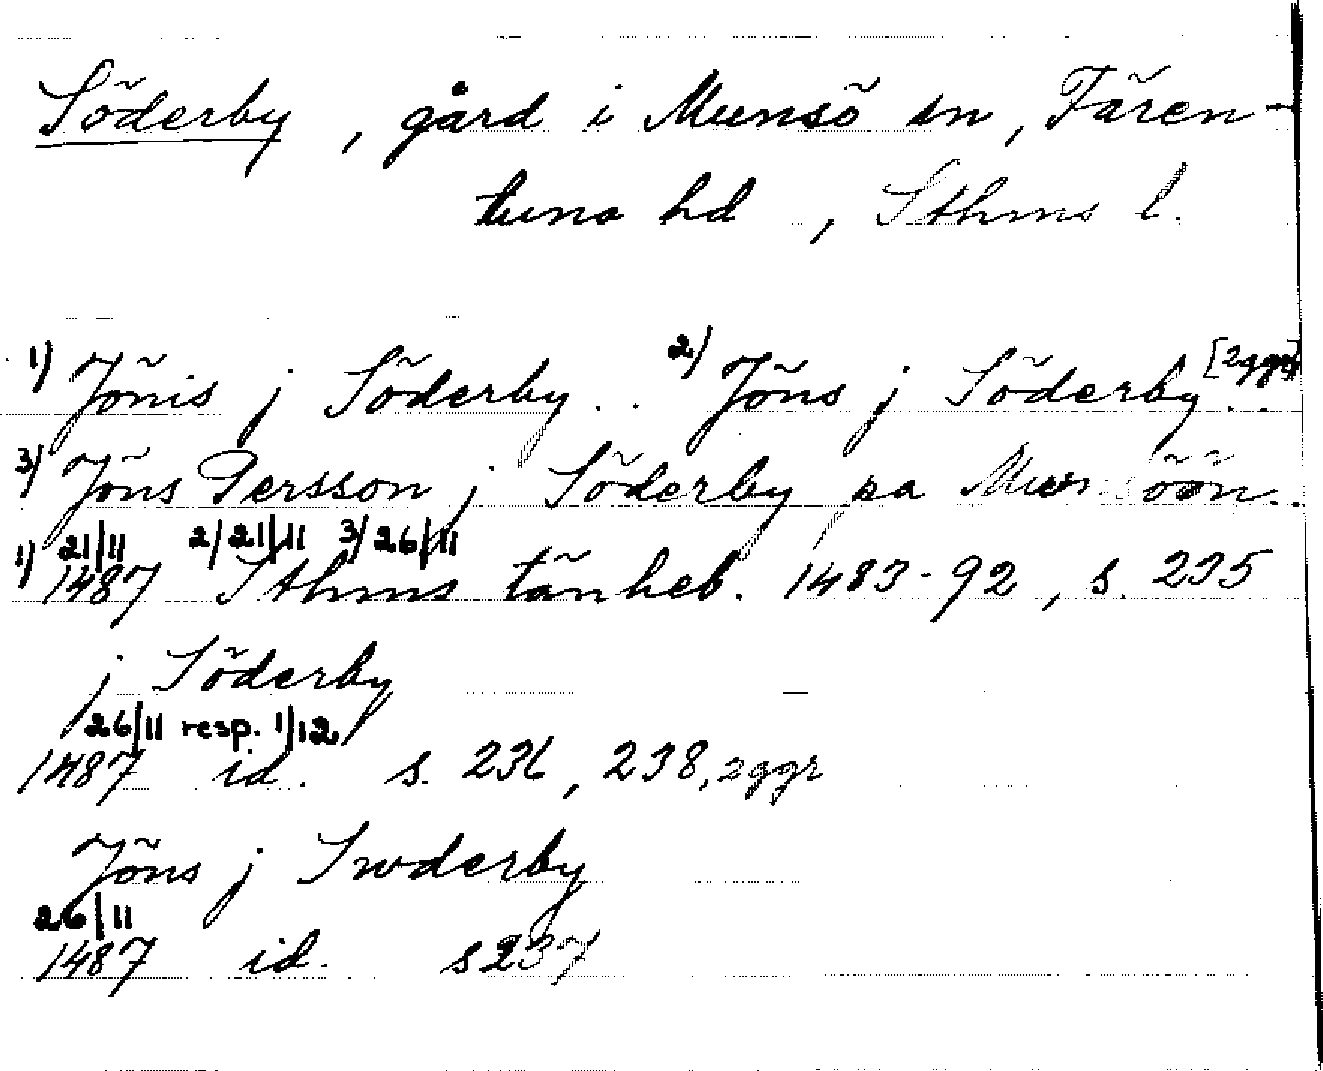 Söderby, gård i Munsö sn, Fären-
tuna hd, Sthms l.
1) Jönis j Söderby.. 2) Jöns j Söderby.. [2ggr]
3) Jöns Persson j Söderby pa Munsöön.
1) 21/11 2/21/11 3/26/11
1487 Sthms tänkeb. 1483-92, s. 235
j Söderby
26/11 resp. 1/12
1487 id. s. 236, 238, 2ggr
Jöns j Swderby
26/11
1487 id. s 237